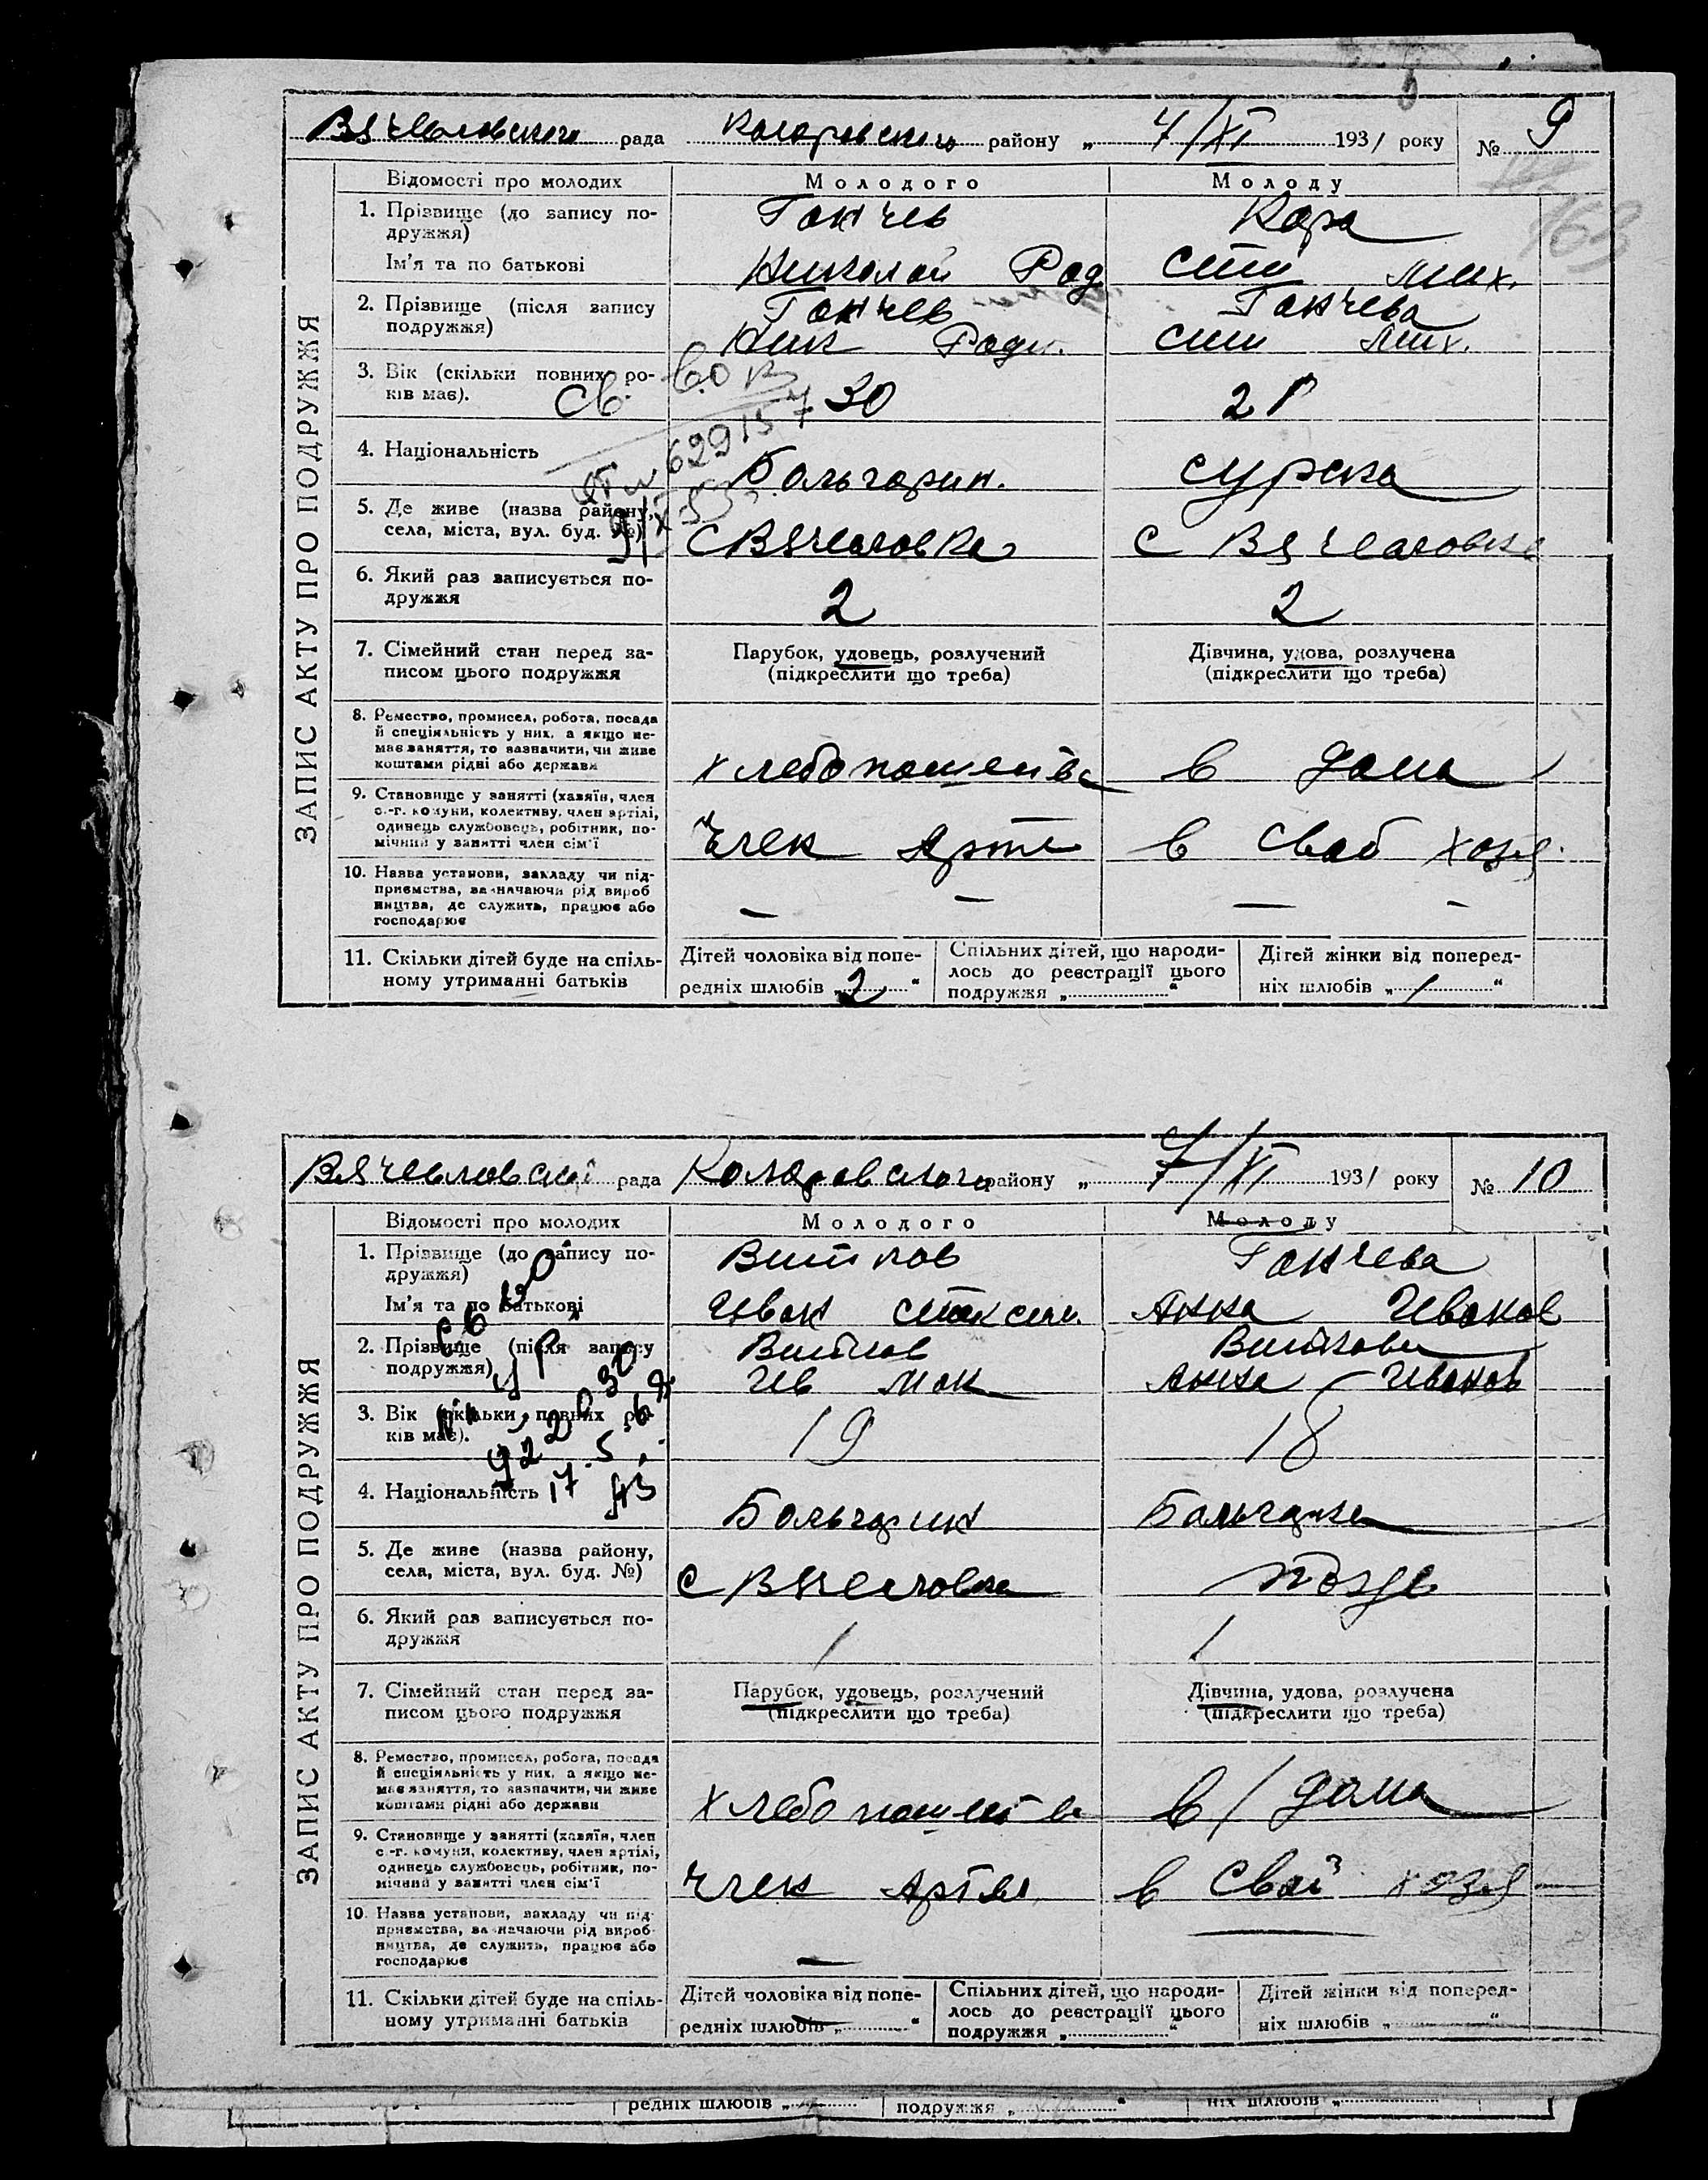 Вячеловского рада Коларовского району „ 7/XI 1931 року № 9
163
ЗАПИС АКТУ ПРО ПОДРУЖЖЯ
Відомості про молодих Молодого Молоду
1. Прізвище (до запису по-
дружжя) Ганчев Кара
Ім'я та по батькові Николай Род Мих.
2. Прізвище (після запису
подружжя) Ганчев Ганчева
Ник Роди. Мих.
3. Вік (скільки повних ро-
ків має). 30 28
4. Національність Больгарин.
5. Де живе (назва району,
села, міста, вул. буд. №) С Вячеловка С Вячеловка
6. Який раз записується по-
дружжя 2 2
7. Сімейний стан перед за-
писом цього подружжя
Парубок, удовець, розлучений Дівчина, удова, розлучена
(підкреслити що треба) (підкреслити що треба)
8. Ремество, промисел, робота, посада
й спеціяльність у них, а якщо не-
має заняття, то зазначити, чи живе
коштами рідні або держави в дома
9. Становище у занятті (хазяїн, член
с.-г. комуни, колективу, член артілі,
одинець службовець, робітник, по-
мічний у занятті член сім'ї Член Арте в
10. Назва установи, закладу чи під-
приємства, зазначаючи рід вироб
ництва, де служить, працює або
господарює — — — -
11. Скільки дітей буде на спіль-
ному утриманні батьків
Дітей чоловіка від попе-
редніх шлюбів „ 2 “
Спільних дітей, що народи-
лось до реєстрації цього
подружжя „ “
Дітей жінки від поперед-
ніх шлюбів „ 1 “
Вячеловской рада Коларовского району „ 7/XI 1931 року № 10
ЗАПИС АКТУ ПРО ПОДРУЖЖЯ
Відомості про молодих Молодого Молоду
1. Прізвище (до запису по-
дружжя) Витков Ганчева
Ім'я та по батькові Иван Анна Иванов
2. Прізвище (після запису
подружжя) Витков Виткова
Ив Анна Иванов
3. Вік (скільки повних ро-
ків має). 19 18
4. Національність Больгарин Больгарка
5. Де живе (назва району,
села, міста, вул. буд. №) С Вячеловка
6. Який раз записується по-
дружжя 1 1
7. Сімейний стан перед за-
писом цього подружжя
Парубок, удовець, розлучений Дівчина, удова, розлучена
(підкреслити що треба) (підкреслити що треба)
8. Ремество, промисел, робота, посада
й спеціяльність у них, а якщо не-
має заняття, то зазначити, чи живе
коштами рідні або держави в/дома
9. Становище у занятті (хазяїн, член
с.-г. комуни, колективу, член артілі,
одинець службовець, робітник, по-
мічний у занятті член сім'ї Член Артел в свой хозя
10. Назва установи, закладу чи під
приємства, зазначаючи рід вироб-
ництва, де служить, працює або
господарює — —
11. Скільки дітей буде на спіль-
ному утриманні батьків
Дітей чоловіка від попе-
редніх шлюбів „ “
Спільних дітей, що народи-
лось до реєстрації цього
подружжя „ “
Дітей жінки від поперед-
ніх шлюбів „ “
редніх шлюбів „ подружжя „ “ ніх шлюбів „